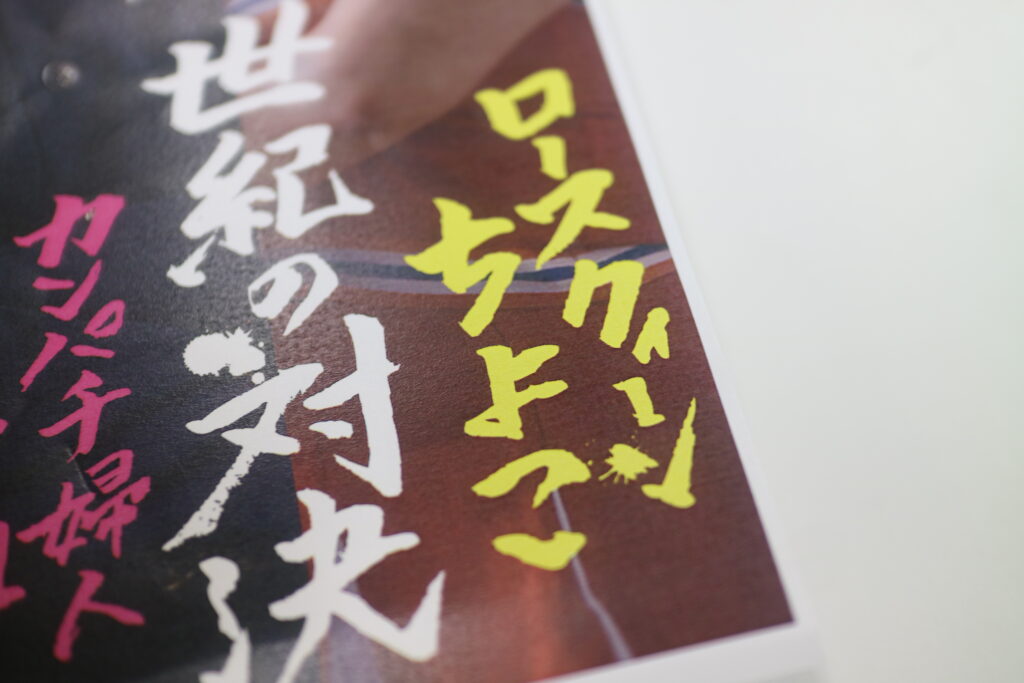 ロースクイーン
ちよこ
世紀の対決
カンパチ婦人